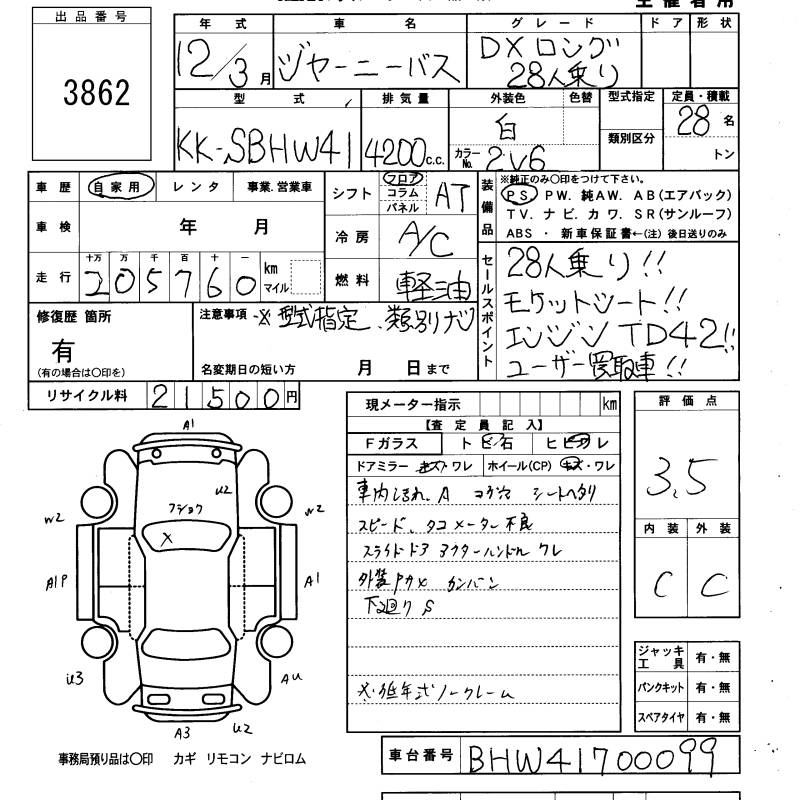 主催者用
出品番号
3862
年式 車名 グレード ドア 形状
12/3月 ジャーニーバス DXロング 28人乗り
型式 排気量 外装色 色替 型式指定 定員・積載
KK-SBHW41 4200c.c. 白 28名
カラーNo. 2V6 類別区分 トン
車歴 自家用 レンタ 事業.営業車
シフト フロア コラム パネル AT
装備品 ※純正のみ〇印をつけて下さい。
PS. PW. 純AW. AB(エアバック)
TV. ナビ. カワ. SR(サンルーフ)
ABS ・ 新車保証書←(注) 後日送りのみ
車検 年 月
冷房 A/C
走行 十万 万 千 百 十 一 km マイル
205760
燃料 軽油
セールスポイント
28人乗り!!
モケットシート!!
エンジンTD42!!
ユーザー買取車!!
修復歴 箇所
有
(有の場合は〇印を)
注意事項 ※型式指定、類別ナシ
名変期日の短い方 月 日まで
リサイクル料 21500円
現メーター指示 km
【査定員記入】
Fガラス トビ石 ヒビワレ
ドアミラー キズ・ワレ ホイール(CP) キズ・ワレ
車内しみれ.A コゲ穴 シートヘタリ
スピード、タコメーター不良
スライドドア アウターハンドル ワレ
外装 カンバン
下廻り S
※低年式ノークレーム
評価点
3.5
内装 外装
C C
ジャッキ工具 有・無
パンクキット 有・無
スペアタイヤ 有・無
A1
U2
フショク
X
W2
W2
A1P
A1
U3
AU
A3
U2
事務局預り品は〇印 カギ リモコン ナビロム
車台番号 BHW41700099